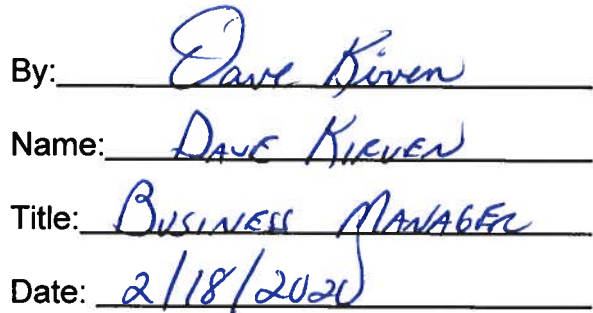 By: Dave Kirven
Name: DAVE KIRVEN
Title: BUSINESS MANAGER
Date: 2/18/2020